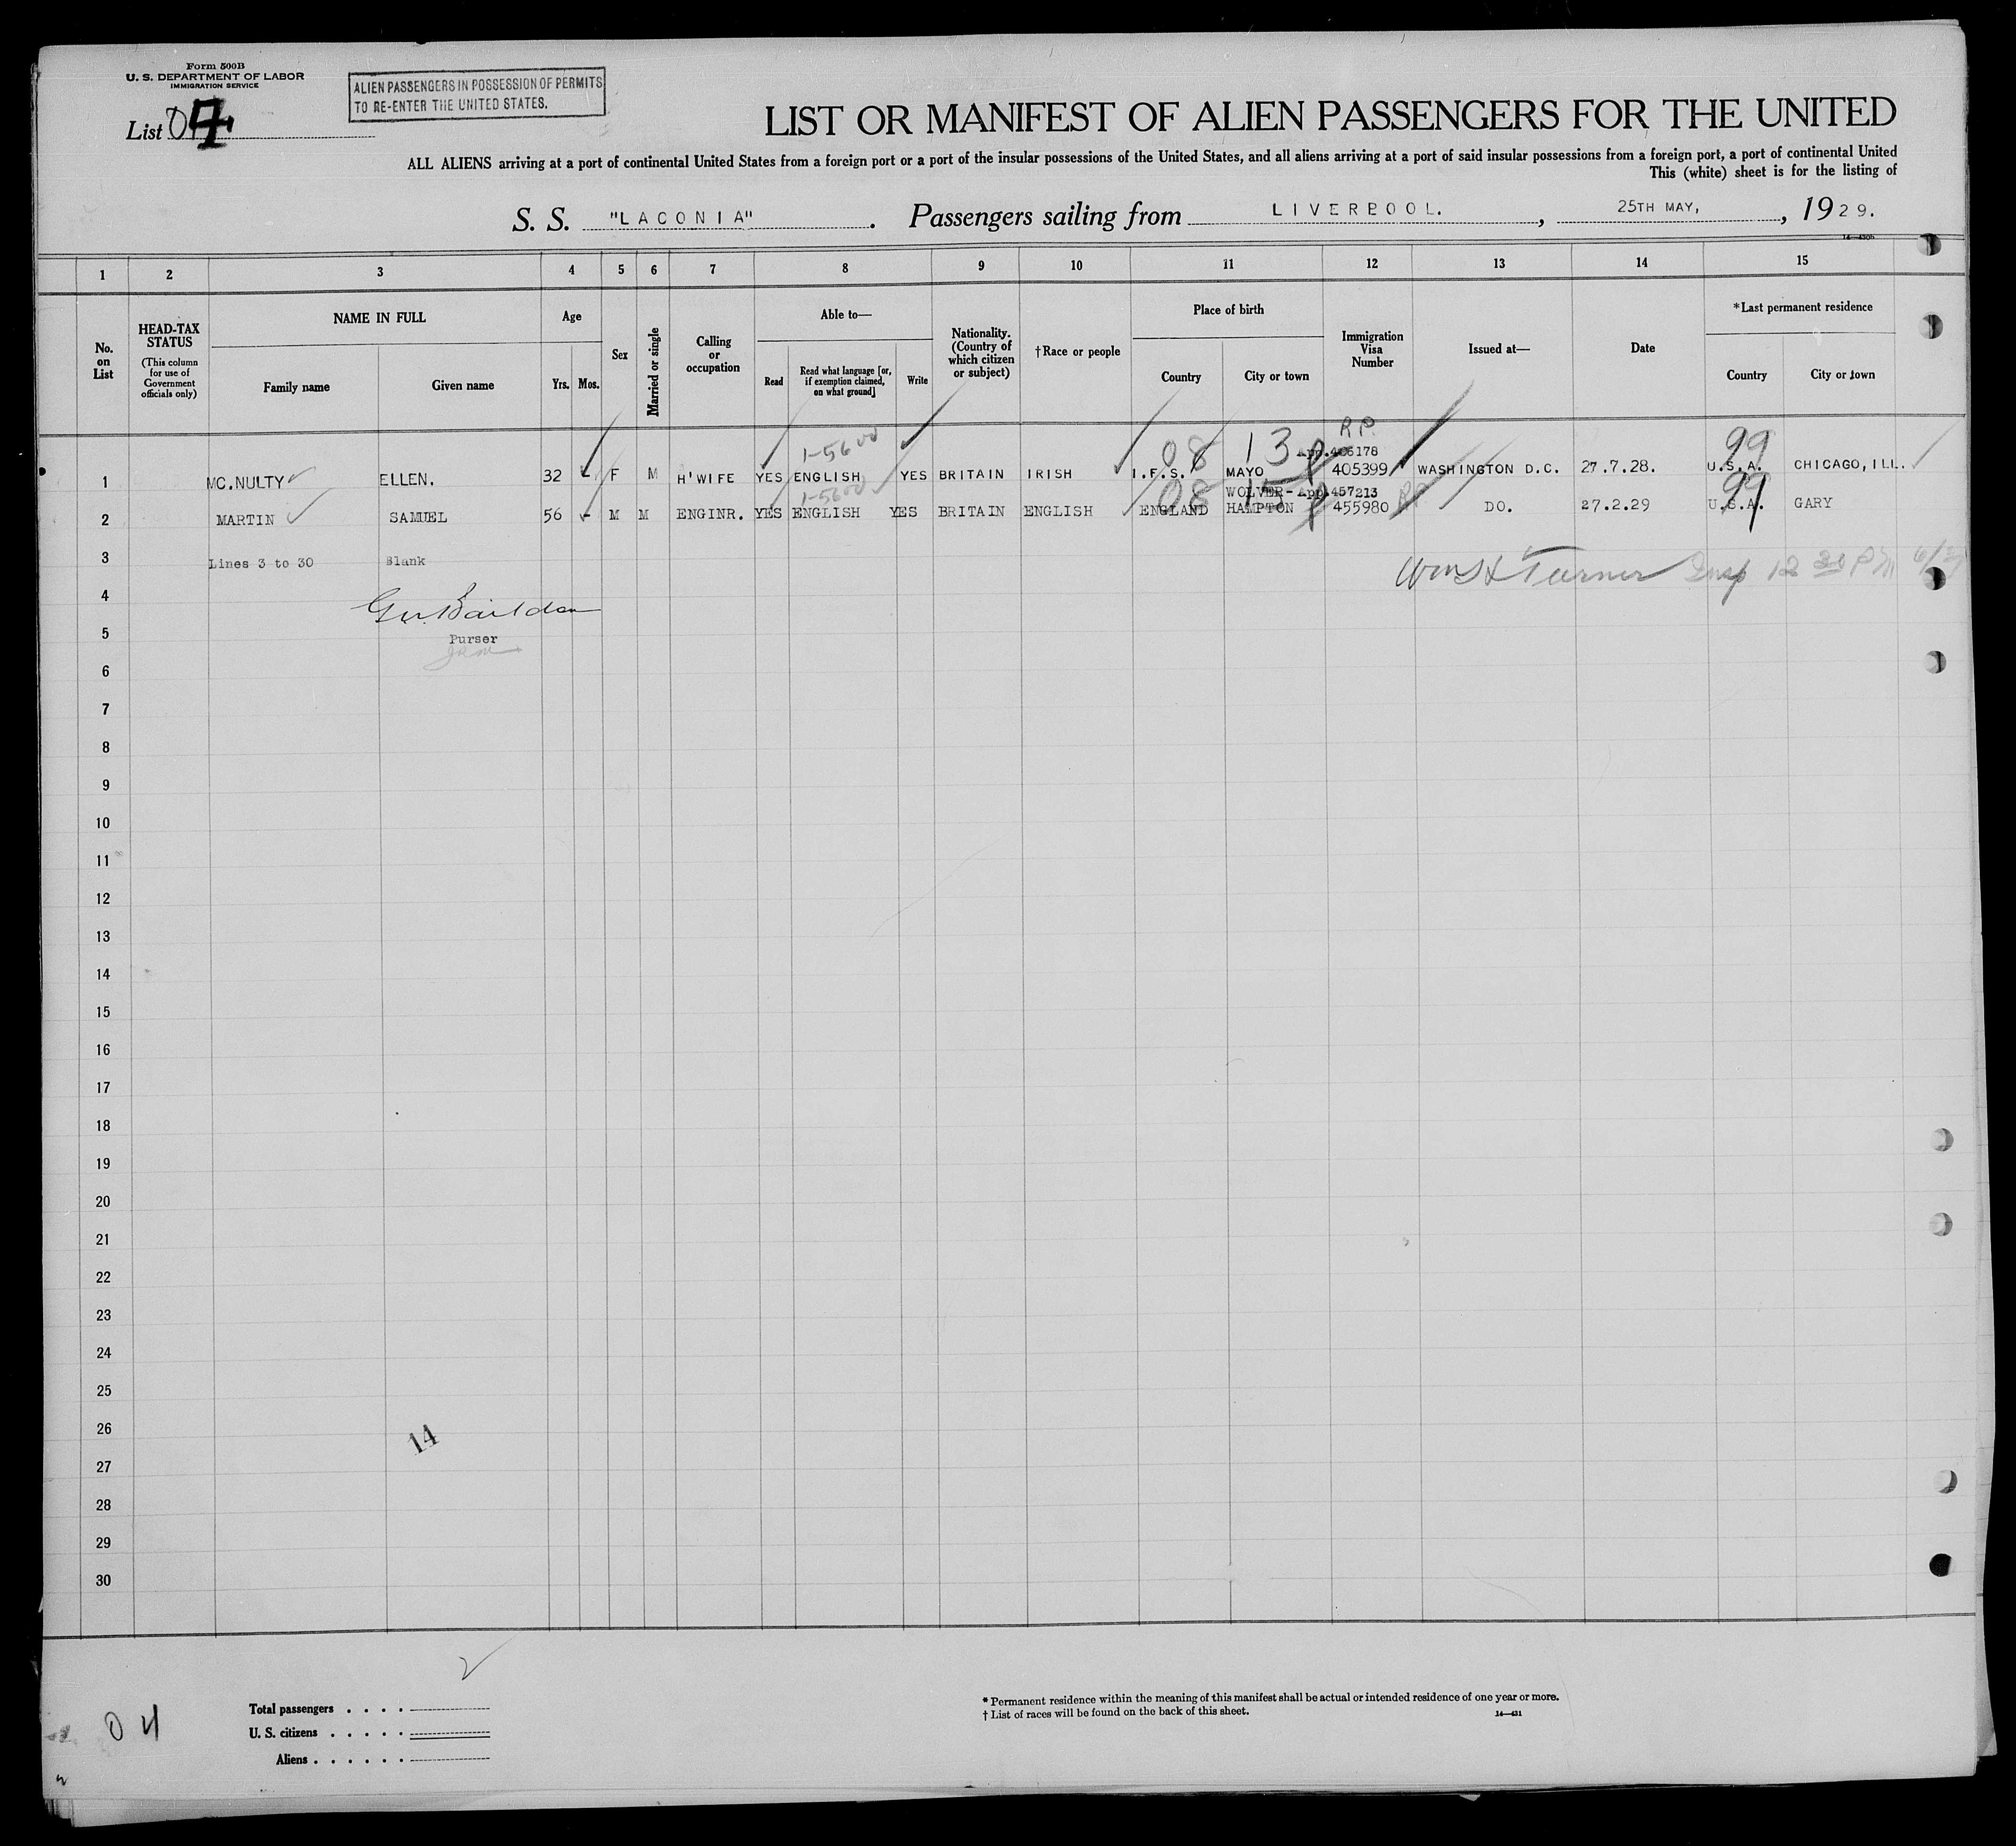 Form 500B
U. S. DEPARTMENT OF LABOR
IMMIGRATION SERVICE
ALIEN PASSENGERS IN POSSESSION OF PERMITS
TO RE-ENTER THE UNITED STATES.
List 04
LIST OR MANIFEST OF ALIEN PASSENGERS FOR THE UNITED
ALL ALIENS arriving at a port of continental United States from a foreign port or a port of the insular possessions of the United States, and all aliens arriving at a port of said insular possessions from a foreign port, a port of continental United
This (white) sheet is for the listing of
S. S. "LACONIA". Passengers sailing from LIVERPOOL., 25TH MAY, , 1929.
1 2 3 4 5 6 7 8 9 10 11 12 13 14 15
No. on List
HEAD-TAX STATUS
(This column for use of Government officials only)
NAME IN FULL
Family name Given name
Age
Yrs. Mos.
Sex
Married or single
Calling or occupation
Able to—
Read
Read what language [or, if exemption claimed, on what ground]
Write
Nationality. (Country of which citizen or subject)
†Race or people
Place of birth
Country City or town
Immigration Visa Number
Issued at—
Date
*Last permanent residence
Country City or town
R.P.
1-5600 08 13 App.406178 99
1 MC.NULTY ELLEN. 32 - F M H'WIFE YES ENGLISH YES BRITAIN IRISH I.F.S. MAYO 405399 WASHINGTON D.C. 27.7.28. U.S.A. CHICAGO, ILL.
1-5600 08 15 WOLVER- App.457213 RP 99
2 MARTIN SAMUEL 56 - M M ENGINR. YES ENGLISH YES BRITAIN ENGLISH ENGLAND HAMPTON 455980 DO. 27.2.29 U.S.A. GARY
3 Lines 3 to 30 Blank
Turner Insp 12 30 PM
4
5 Purser
6
7
8
9
10
11
12
13
14
15
16
17
18
19
20
21
22
23
24
25
26
14
27
28
29
30
2
04
Total passengers . . . .
U. S. citizens . . . . .
Aliens . . . . . .
* Permanent residence within the meaning of this manifest shall be actual or intended residence of one year or more.
† List of races will be found on the back of this sheet.
14—431